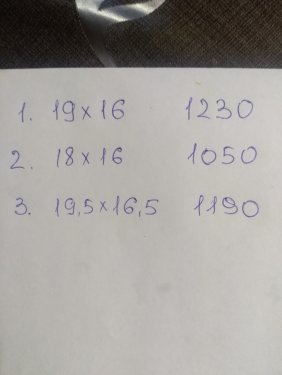 1. 19x16 1230
2. 18x16 1050
3. 19,5x16,5 1190